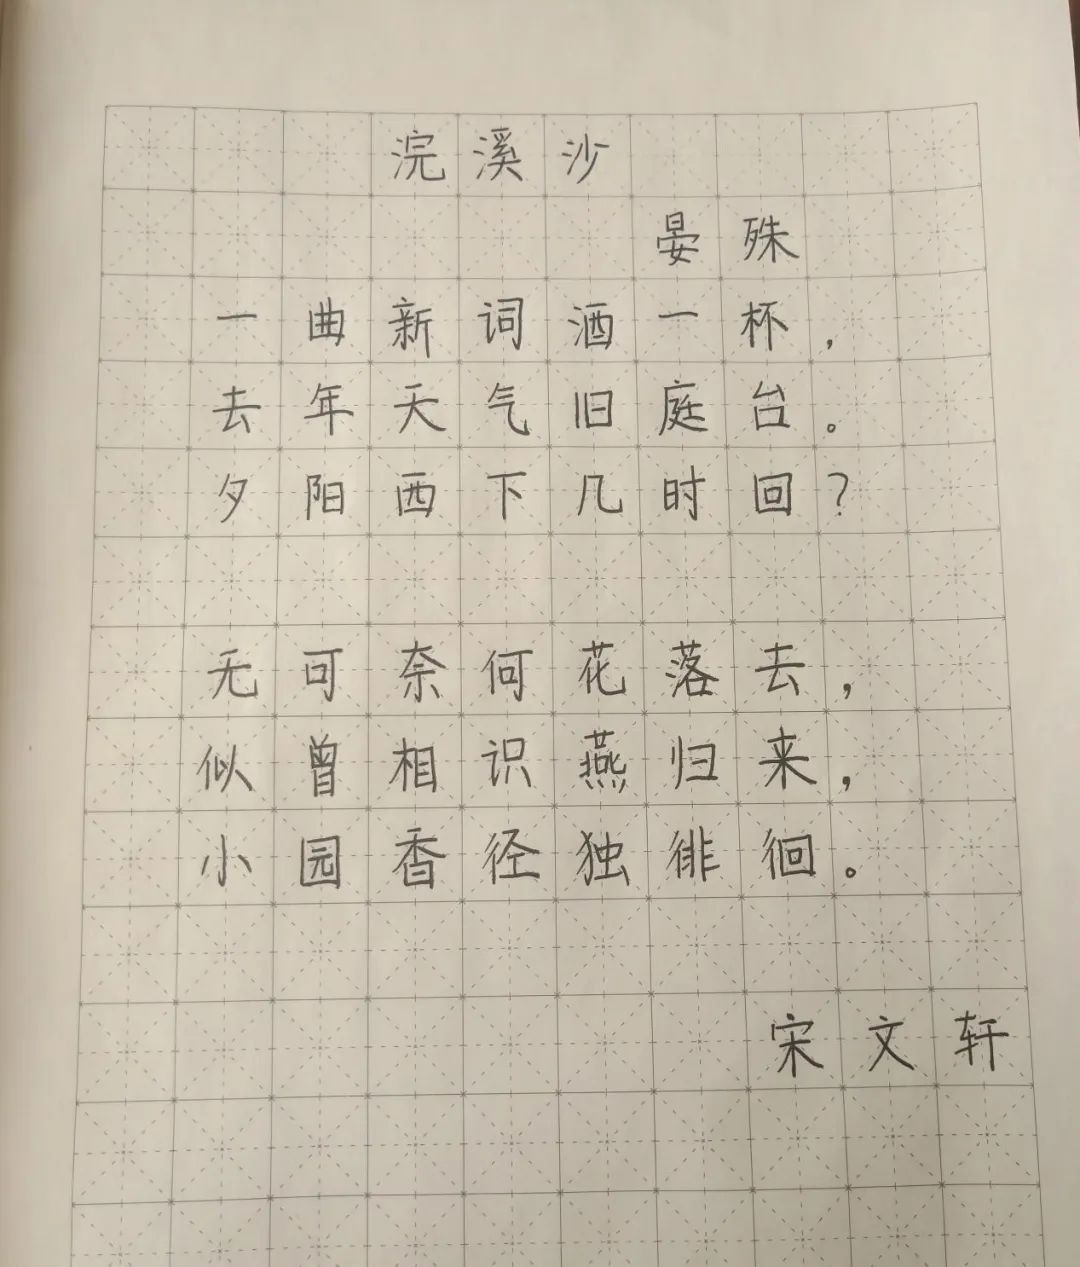 浣溪沙
晏殊
一曲新词酒一杯，
去年天气旧庭台。
夕阳西下几时回？
无可奈何花落去，
似曾相识燕归来，
小园香径独徘徊。
宋文轩